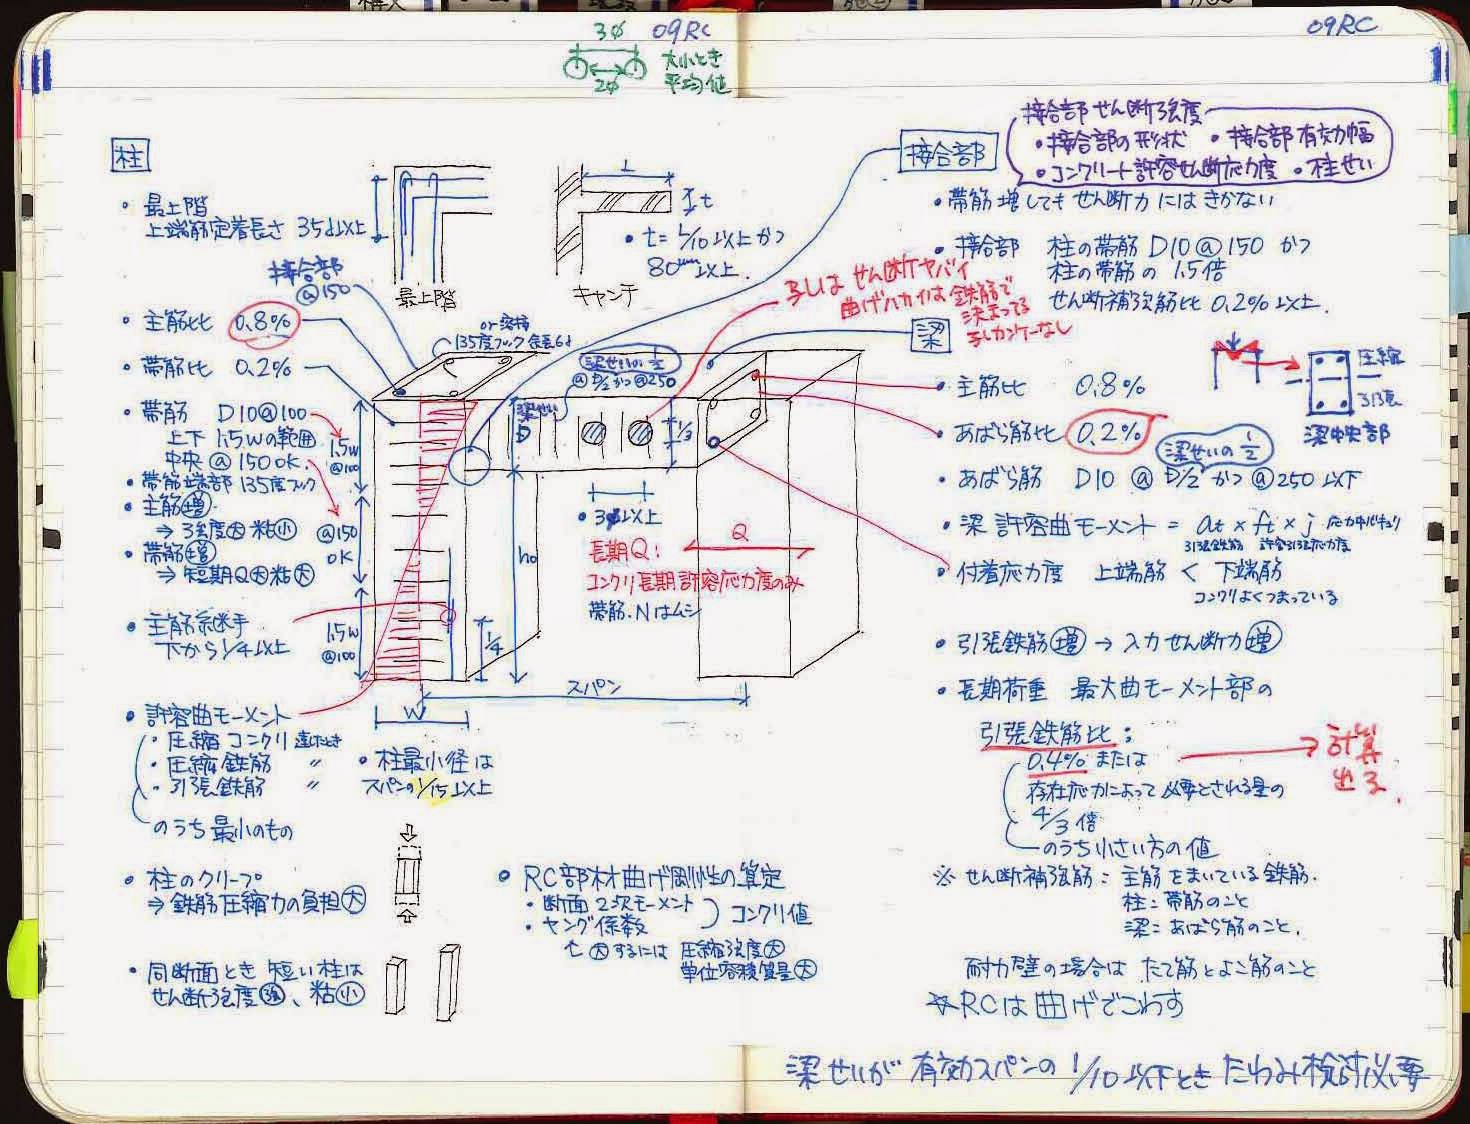 3φ 09RC
大小とき
2φ 平均値
09RC
柱
・最上階
上端筋定着長さ 35d以上
最上階
L
t
・t=L/10以上かつ
80mm以上.
キャンチ
接合部
@150
・主筋比 0.8%
・帯筋比 0.2%
・帯筋 D10@100
上下 1.5Wの範囲
中央 @150 OK.
・帯筋端部 135度フック
・主筋増
⇒ 強度大 粘小
・帯筋増
⇒ 短期Q大 粘大
・主筋継手
下から1/4以上
・許容曲モーメント
・圧縮コンクリ 達したとき
・圧縮鉄筋 〃
・引張鉄筋 〃
のうち最小のもの
・柱のクリープ
⇒ 鉄筋圧縮力の負担大
・同断面とき 短い柱は
せん断強度強、粘小
1.5W
@100
@150
OK
1.5W
@100
or 溶接
135度フック 余長6d
梁せいの1/2
@D/2かつ@250
梁せい
D
1/3
・3φ以上
h0
1/4
長期Q:
コンクリ長期許容応力度のみ
帯筋.Nはムシ
Q
スパン
W
・柱最小径は
スパンの1/15以上
・RC部材曲げ剛性の算定
・断面2次モーメント
・ヤング係数
コンクリ値
大するには 圧縮強度大
単位容積質量大
孔はせん断ヤバイ
曲げハカイは鉄筋で
決まってる
孔カンケーなし
接合部
接合部せん断強度
・接合部の形状 ・接合部有効幅
・コンクリート許容せん断応力度 ・柱せい
・帯筋増してもせん断力にはきかない
・接合部 柱の帯筋D10@150 かつ
柱の帯筋の1.5倍
せん断補強筋比0.2%以上.
梁
・主筋比 0.8%
・あばら筋比 0.2%
梁せいの1/2
・あばら筋 D10 @D/2かつ@250以下
圧縮
引張
梁中央部
・梁 許容曲モーメント = at × ft × j
引張鉄筋 許容引張応力度
・付着応力度 上端筋 < 下端筋
コンクリよくつまっている
・引張鉄筋増 → 入力せん断力増
・長期荷重 最大曲モーメント部の
引張鉄筋比;
0.4% または
存在応力によって必要とされる量の
4/3倍
のうち小さい方の値
計算
出る.
※ せん断補強筋: 主筋をまいている鉄筋.
柱: 帯筋のこと
梁: あばら筋のこと.
耐力壁の場合は たて筋とよこ筋のこと
☆RCは曲げでこわす
梁せいが有効スパンの1/10以下とき たわみ検討必要